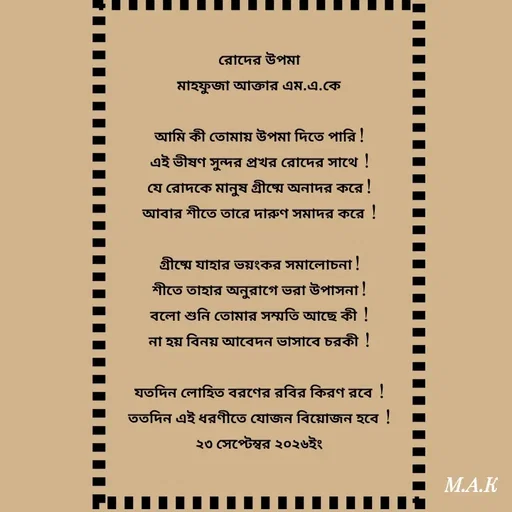 রোদের উপমা
মাহফুজা আক্তার এম.এ.কে
আমি কী তোমায় উপমা দিতে পারি!
এই ভীষণ সুন্দর প্রখর রোদের সাথে !
যে রোদকে মানুষ গ্রীষ্মে অনাদর করে!
আবার শীতে তারে দারুণ সমাদর করে !
গ্রীষ্মে যাহার ভয়ংকর সমালোচনা!
শীতে তাহার অনুরাগে ভরা উপাসনা!
বলো শুনি তোমার সম্মতি আছে কী !
না হয় বিনয় আবেদন ভাসাবে চরকী !
যতদিন লোহিত বরণের রবির কিরণ রবে !
ততদিন এই ধরণীতে যোজন বিয়োজন হবে !
২৩ সেপ্টেম্বর ২০২৬ইং
M.A.K